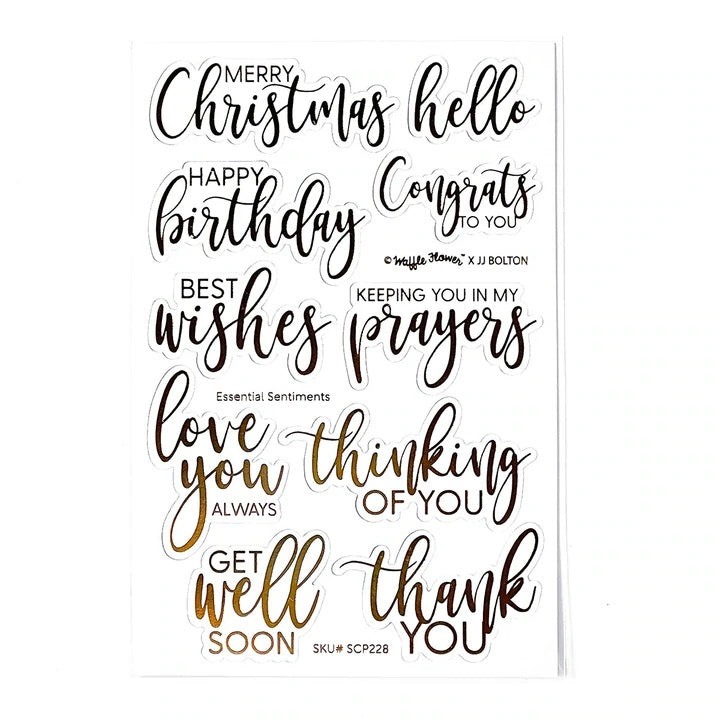 MERRY
Christmas
hello
HAPPY
birthday
Congrats
TO YOU
© Waffle Flower™ X JJ BOLTON
BEST
wishes
KEEPING YOU IN MY
prayers
Essential Sentiments
love
you
ALWAYS
thinking
OF YOU
GET
well
SOON
thank
YOU
SKU# SCP228